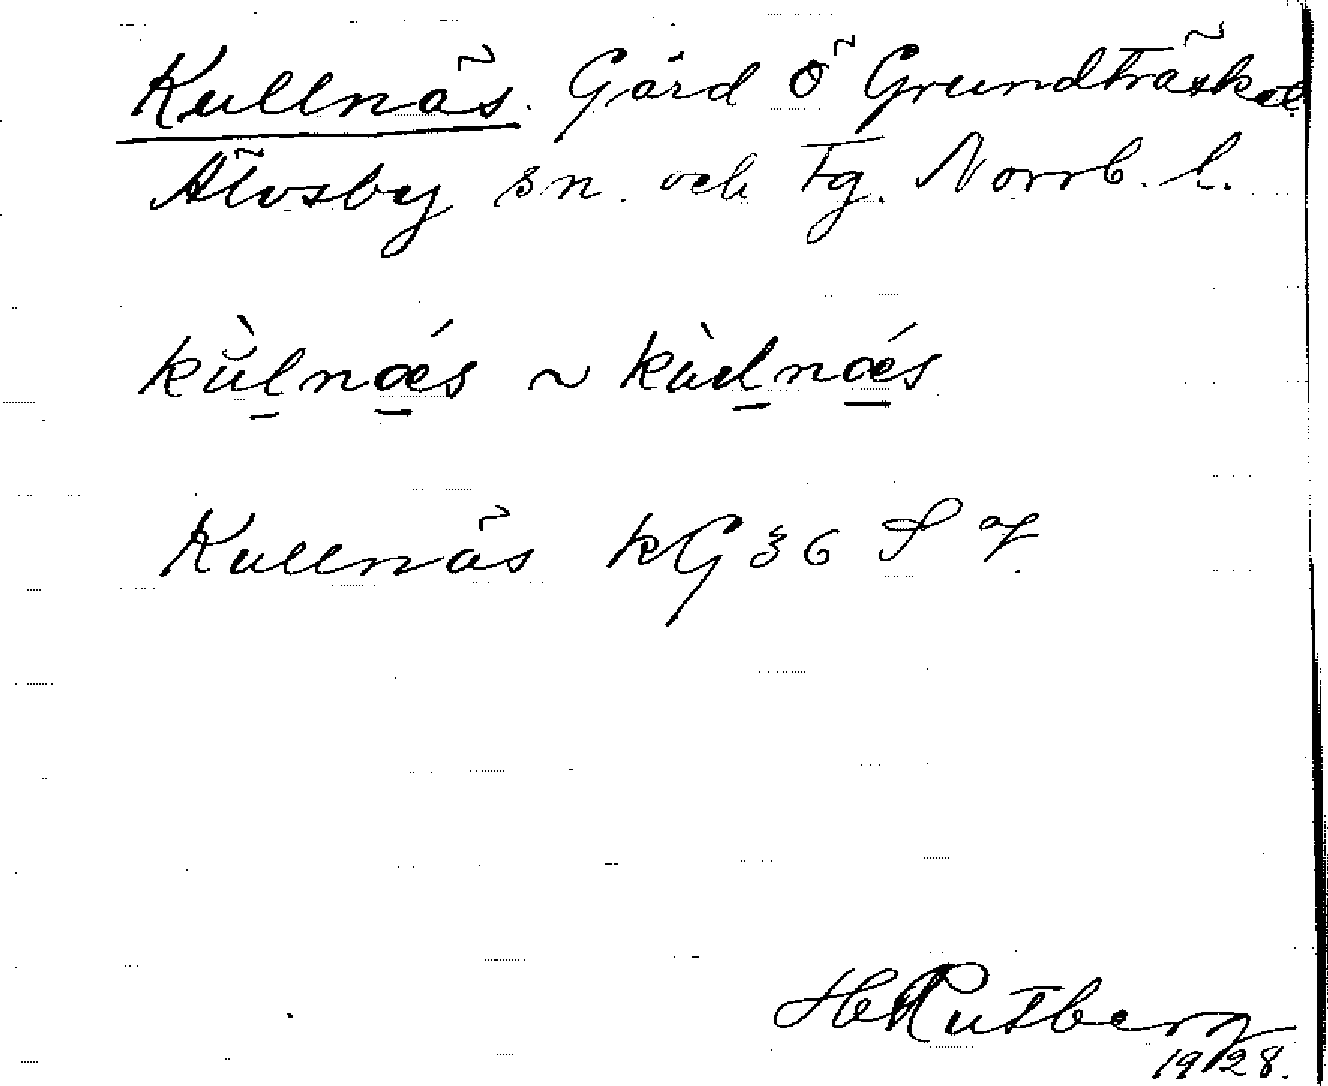 Kullnäs. Gård Ö Grundträsket
Älvsby sn. och tg. Norrb. l.
kŭ̀lnǽs ~ kùlnǽs
Kullnäs kG 36 S 7.
H Rutberg
1928.